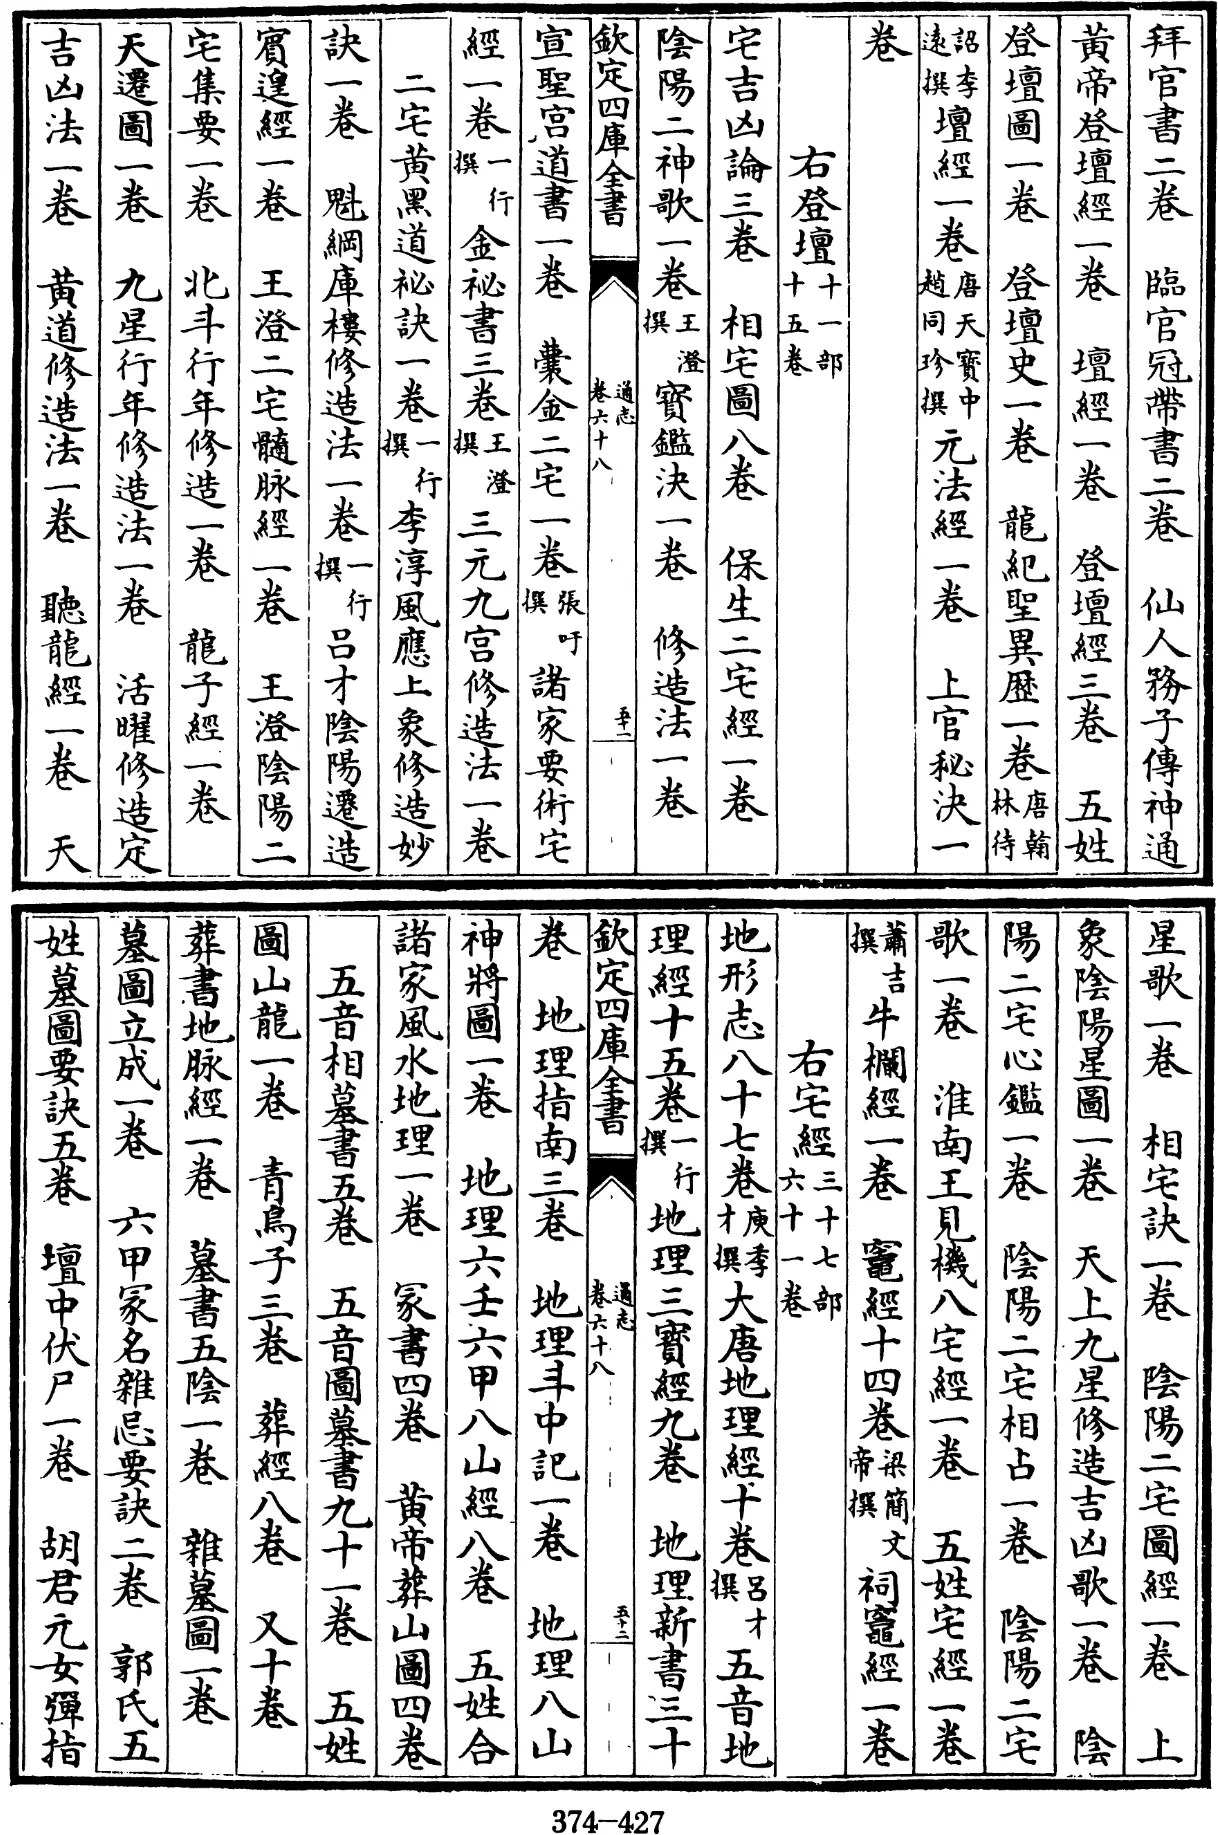 拜官書二卷　臨官冠帶書二卷　仙人務子傳神通
黃帝登壇經一卷　壇經一卷　登壇經三卷　五姓
登壇圖一卷　登壇史一卷　龍紀聖異歴一卷唐翰林待
詔李遠撰壇經一卷唐天寶中趙同珍撰元法經一卷　上官秘決一
卷
右登壇十一部十五卷
宅吉凶論三卷　相宅圖八卷　保生二宅經一卷
陰陽二神歌一卷王澄撰寶鑑決一卷　修造法一卷
欽定四庫全書　通志卷六十八　五十一
宣聖宫道書一卷　囊金二宅一卷張吁撰諸家要術宅
經一卷一行撰金祕書三卷王澄撰三元九宫修造法一卷
二宅黄黑道祕訣一卷一行撰李淳風應上象修造妙
訣一卷　魁綱庫樓修造法一卷一行撰吕才陰陽遷造
賓遑經一卷　王澄二宅髓脉經一卷　王澄陰陽二
宅集要一卷　北斗行年修造一卷　龍子經一卷
天遷圖一卷　九星行年修造法一卷　活曜修造定
吉凶法一卷　黄道修造法一卷　聽龍經一卷　天
星歌一卷　相宅訣一卷　陰陽二宅圖經一卷　上
象陰陽星圖一卷　天上九星修造吉凶歌一卷　陰
陽二宅心鑑一卷　陰陽二宅相占一卷　陰陽二宅
歌一卷　淮南王見機八宅經一卷　五姓宅經一卷
蕭吉撰牛欄經一卷　竈經十四卷梁簡文帝撰祠竈經一卷
右宅經三十七部六十一卷
地形志八十七卷庾季才撰大唐地理經十卷吕才撰五音地
理經十五卷一行撰地理三寶經九卷　地理新書三十
欽定四庫全書　通志卷六十八　五十二
卷　地理指南三卷　地理斗中記一卷　地理八山
神將圖一卷　地理六壬六甲八山經八卷　五姓合
諸家風水地理一卷　冢書四卷　黄帝葬山圖四卷
五音相墓書五卷　五音圖墓書九十一卷　五姓
圖山龍一卷　青烏子三卷　葬經八卷　又十卷
葬書地脉經一卷　墓書五陰一卷　雜墓圖一卷
墓圖立成一卷　六甲冢名雜忌要訣二卷　郭氏五
姓墓圖要訣五卷　壇中伏尸一卷　胡君元女彈指
374-427